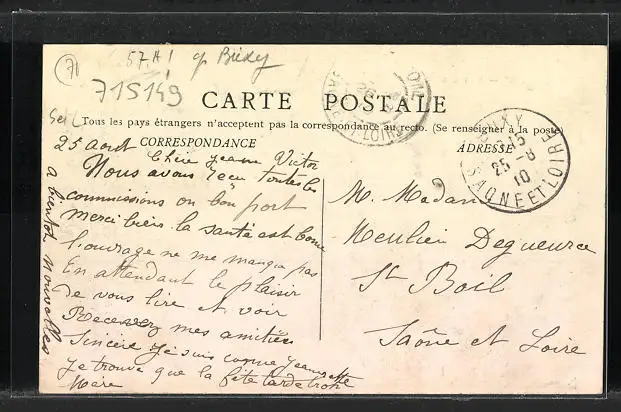 71
57A1 gp Buxy
715149
S et L
CARTE POSTALE
Tous les pays étrangers n'acceptent pas la correspondance au recto. (Se renseigner à la poste)
CORRESPONDANCE
ADRESSE
BUXY
25 - 8
10
SAONE ET LOIRE
25 aout
Chère Jeanne Victor
Nous avons recu toutes les
commissions on bon port
merci bien. la santé est bonne
l'ouvrage ne me manque pas
En attendant le plaisir
de vous lire et voir
Recevez mes amitiées
Sincère Je suis comme Jeannette
je trouve que la fête tarde trop
Marie
a bientot Nouvelles
M. Madame
Meulien Degueurce
St Boil
Saône et Loire